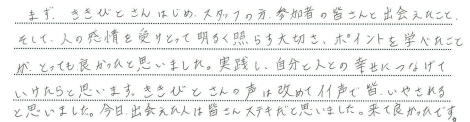 まず、ききびとさんはじめ、スタッフの方、参加者の皆さんと出会えたこと、
そして、人の感情を受けとって明るく照らす大切さ、ポイントを学べたこと
が、とっても良かったと思いました。実践し、自分と人との幸せにつなげて
いけたらと思います。ききびとさんの声は改めてイイ声で皆、いやされる
と思いました。今日、出会えた人は皆さんステキだと思いました。来て良かったです。